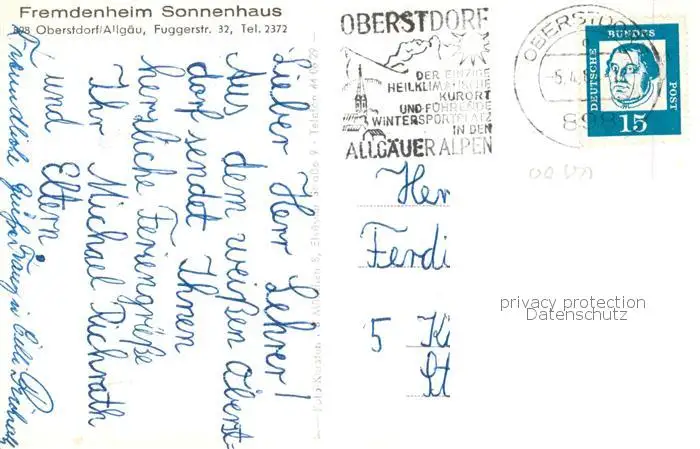 Fremdenheim Sonnenhaus
898 Oberstdorf/Allgäu, Fuggerstr. 32, Tel. 2372
Lieber Herr Lehrer!
Aus dem weißen Oberst=
dorf sendet Ihnen
herzliche Feriengrüße
Ihr Michael Richrath
und Eltern.
Freundliche Grüße
OBERSTDORF
DER EINZIGE
HEILKLIMATISCHE
KURORT
UND FÜHRENDE
WINTERSPORTPLATZ
IN DEN
ALLGÄUER ALPEN
OBERSTDORF
-5.4.
898
DEUTSCHE BUNDESPOST
15
Her
Ferdi
5 K
St
privacy protection
Datenschutz